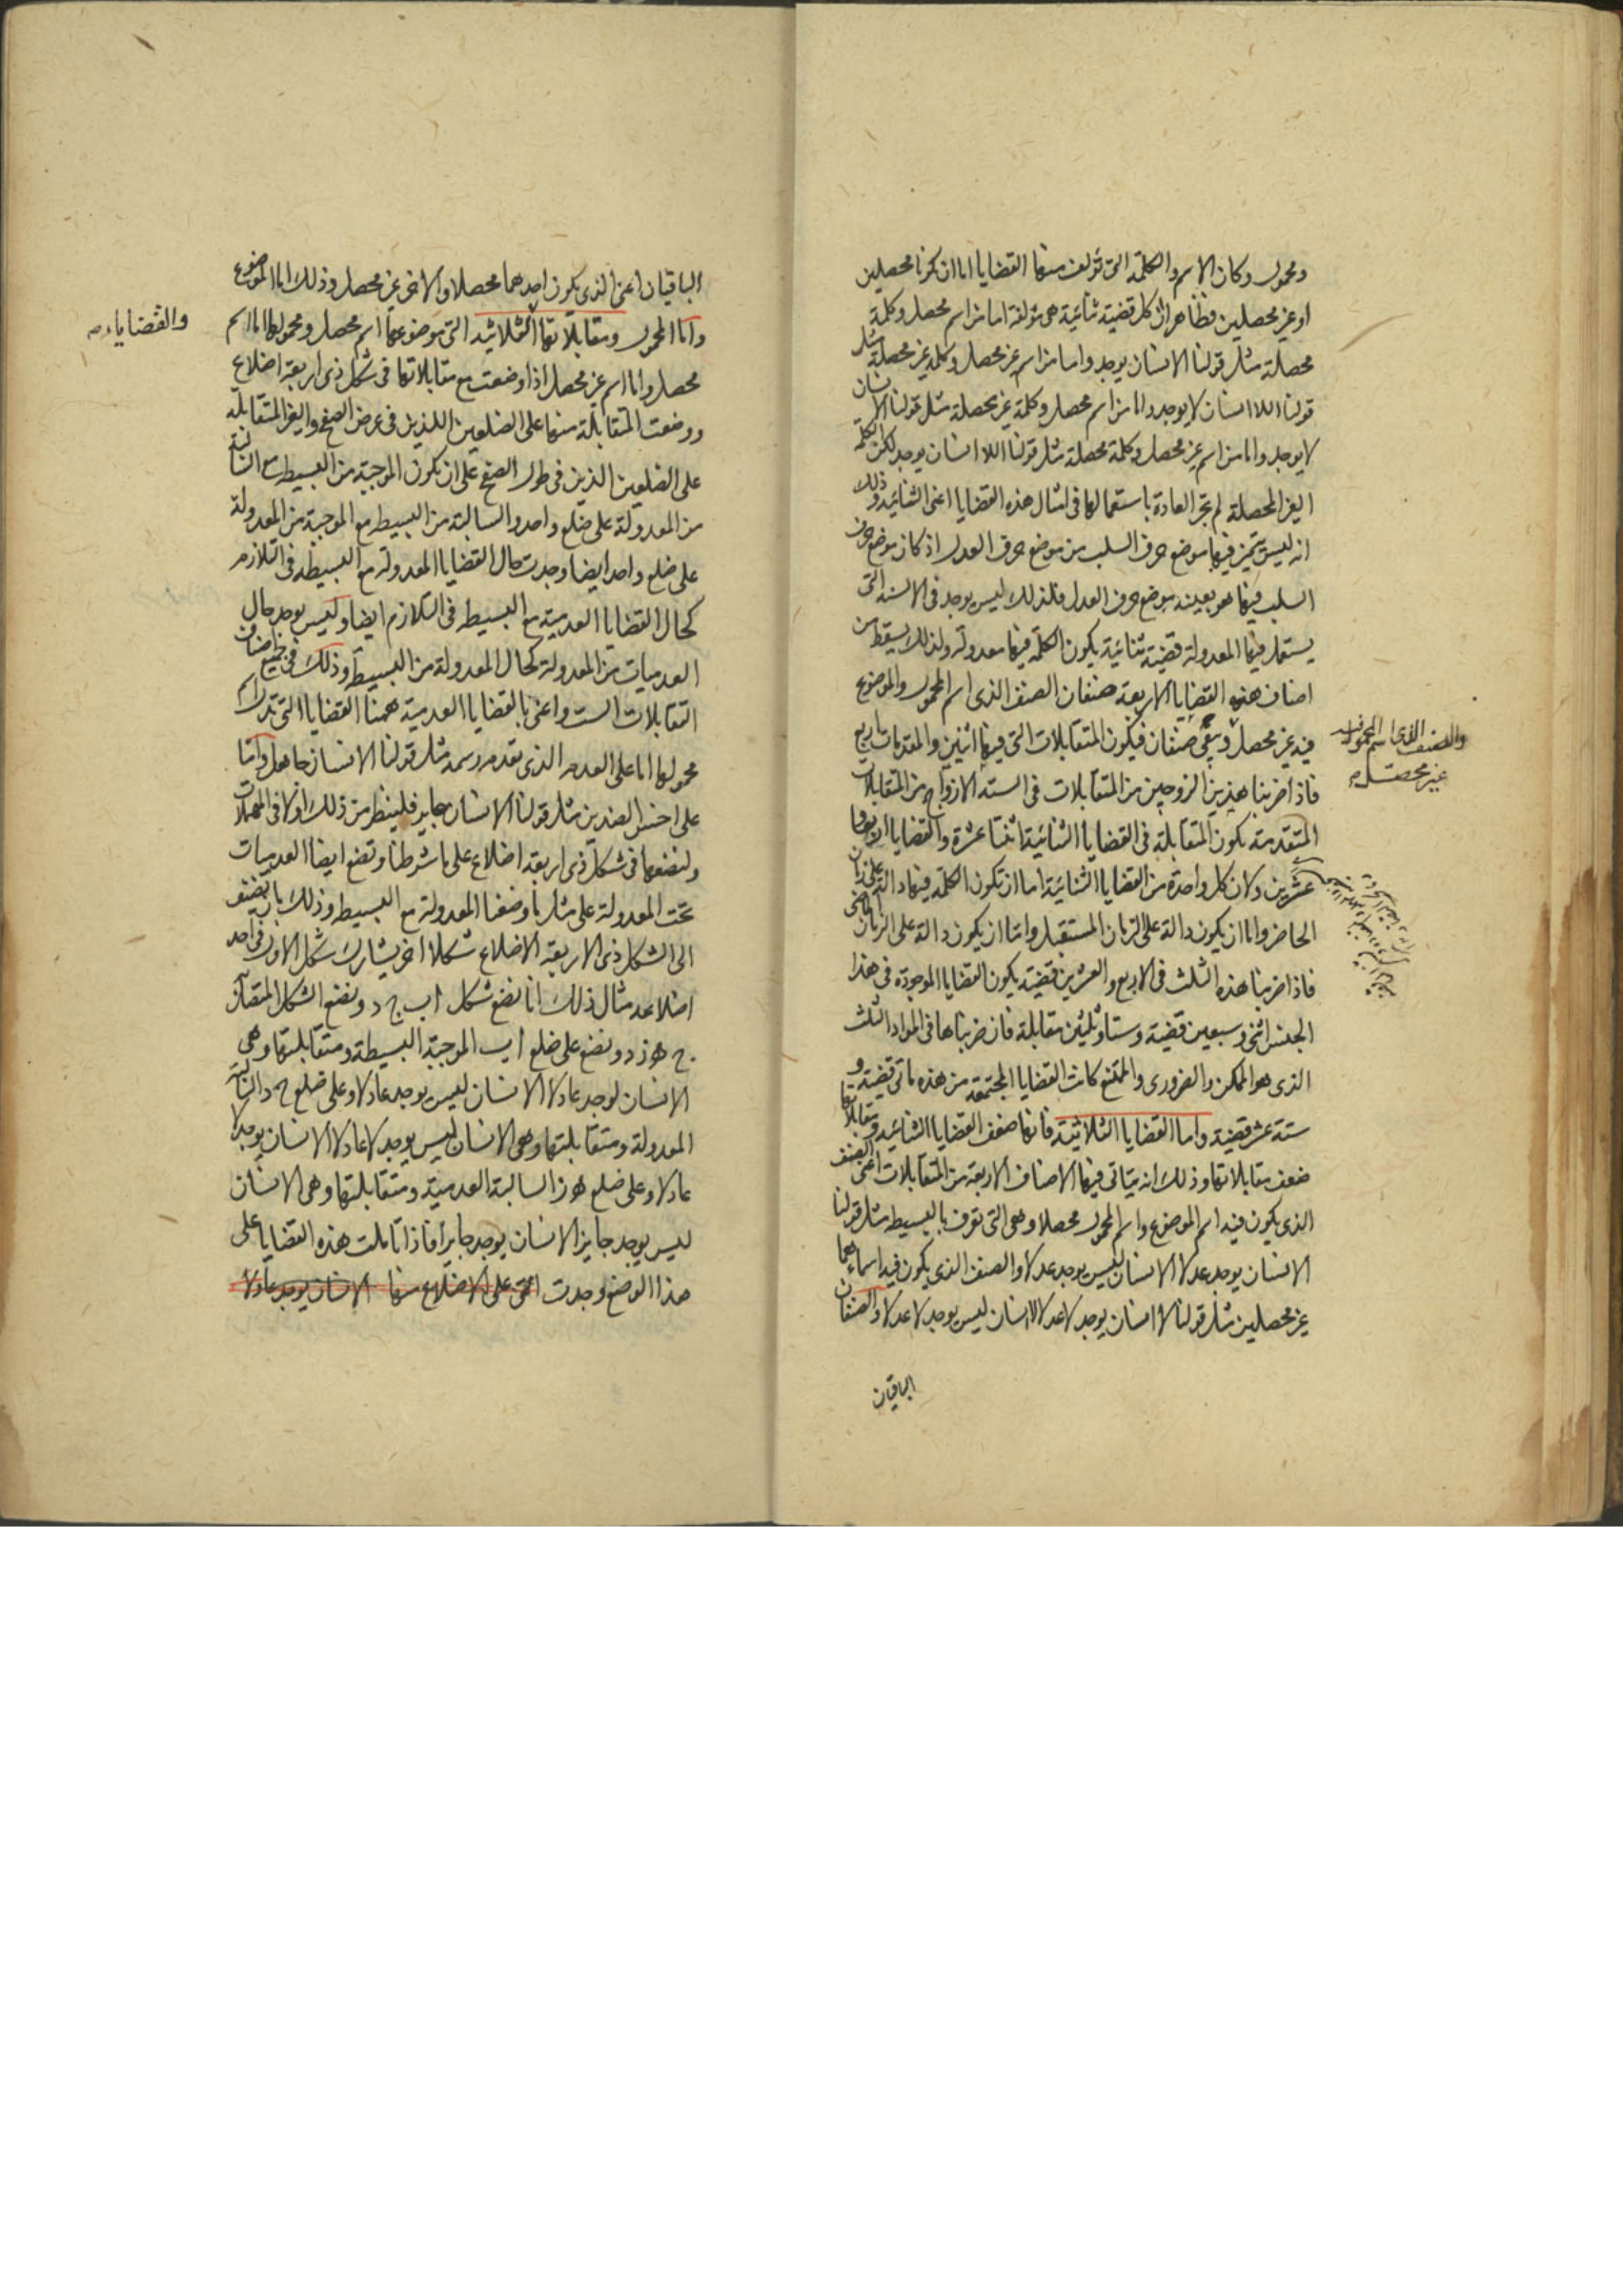 ومحمول وكان الاسم والكلمة التى تؤلف منهما القضايا اما ان يكونا محصلين
او غير محصلين فظاهر ان كل قضية ثنائية هى مؤلفة اما من اسم محصل وكلمة
محصلة مثل قولنا الانسان يوجد واما من اسم غير محصل وكلمة غير محصلة مثل
قولنا اللا انسان لا يوجد واما من اسم محصل وكلمة غير محصلة مثل قولنا الانسان
لا يوجد واما من اسم غير محصل وكلمة محصلة مثل قولنا اللا انسان يوجد لكن الكلمة
الغير المحصلة لم تجر العادة باستعمالها فى امثال هذه القضايا اعنى الثنائية وذلك
انه ليس يتميز فيها موضع حرف السلب من موضع حرف العدل اذ كان موضع حرف
السلب فيها هو بعينه موضع حرف العدل فلذلك ليس يوجد فى الالسنة التى
يستعمل فيها المعدولة قضية ثنائية يكون الكلمة فيها معدولة ولذلك يسقط من
اصناف هذه القضايا الاربعة صنفان الصنف الذى اسم المحمول والموضوع
فيه غير محصل ويبقى صنفان فيكون المتقابلات التى فيها اثنين والمقدمات اربع
والصنف الذى اسم المحمول فيه
غير محصل صح
فاذا ضربنا هذين الزوجين من المتقابلات فى الستة الازواج من المتقابلات
المتقدمة يكون المتقابلة فى القضايا الثنائية اثنتا عشرة والقضايا اربعا و
عشرين ولان كل واحدة من القضايا الثنائية اما ان تكون الكلمة فيها دالة على الزمان
الحاضر واما ان يكون دالة على الزمان المستقبل واما ان يكون دالة على الزمان الماضى
فاذا ضربنا هذه الثلث فى الاربع والعشرين قضية يكون القضايا الموجودة فى هذا
الجنس اثنى وسبعين قضية وستا وثلثين مقابلة فان ضربناها فى المواد الثلث
الذى هو الممكن والضرورى والممتنع كانت القضايا المجتمعة من هذه مأتى قضية و
ستة عشر قضية واما القضايا الثلاثية فانها ضعف القضايا الثنائية ومتقابلاتها
ضعف متقابلاتها وذلك انه يتاتى فيها الاصناف الاربعة من المتقابلات اعنى الصنف
الذى يكون فيه اسم الموضوع واسم المحمول محصلا وهى التى تعرف بالبسيطة مثل قولنا
الانسان يوجد عدلا الانسان ليس يوجد عدلا والصنف الذى يكون فيه اسماءهما
غير محصلين مثل قولنا لا انسان يوجد لا عدلا لا انسان ليس يوجد لا عدلا والصنفان
الباقيان
الباقيان اعنى الذى يكون احدهما محصلا والاخر غير محصل وذلك اما الموضوع
واما المحمول ومقابلاتها الثلاثية التى موضوعها اسم محصل ومحمولها اما اسم
والقضايا صح
محصل واما اسم غير محصل اذا وضعت مع متقابلاتها فى شكل ذى اربعة اضلاع
ووضعت المتقابلة منها على الضلعين اللذين فى عرض الصفح والغير المتقابلة
على الضلعين الذين فى طول الصفح على ان يكون الموجبة من البسيطة مع السالبة
من المعدولة على ضلع واحد والسالبة من البسيط مع الموجبة من المعدولة
على ضلع واحد ايضا وجدت حال القضايا المعدولة مع البسيطة فى التلازم
كحال القضايا العدمية مع البسيطة فى التلازم ايضا وليس يوجد حال
العدميات من المعدولة كحال المعدولة من البسيطة وذلك فى جميع اصناف
التقابلات الست واعنى بالقضايا العدمية ههنا القضايا التى تدل
محمولها اما على العدم الذى تقدم رسمه مثل قولنا الانسان جاهل واما
على اخس الضدين مثل قولنا الانسان جاير فلينظر من ذلك اولا فى المهملات
ولنضعها فى شكل ذى اربعة اضلاع على ما شرطنا ونضع ايضا العدميات
تحت المعدولة على مثل ما وضعنا المعدولة مع البسيطة وذلك بان نضيف
الى الشكل ذى الاربعة الاضلاع شكلا اخر يشارك شكل الاول فى احد
اضلاعه مثال ذلك انا نضع شكل ا ب ج د ونضع الشكل المتصل به
ج ه ز د ونضع على ضلع ا ب الموجبة البسيطة ومتقابلتها وهى
الانسان يوجد عادلا الانسان ليس يوجد عادلا وعلى ضلع ج د السالبة
المعدولة ومتقابلتها وهى الانسان ليس يوجد لا عادلا الانسان يوجد لا
عادلا وعلى ضلع ه ز السالبة العدمية ومتقابلتها وهى الانسان
ليس يوجد جايرا الانسان يوجد جايرا فاذا تأملت هذه القضايا على
هذا الوضع وجدت التى على الاضلاع منها الانسان يوجد عادلا